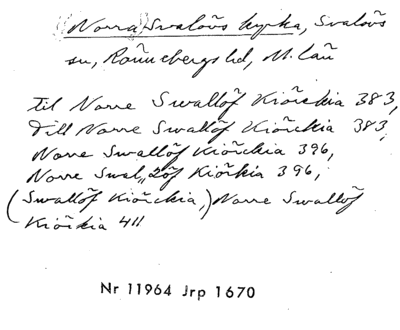 (Norra) Svalövs kyrka, Svalövs
sn, Rönnebergs hd, M. län
till Norre Swallöf Kiörckia 383,
Till Norre Swallöf Kiörckia 383,
Norre Swallöf Kiörckia 396,
Norre Swal„löf Kiörkia 396,
(Swallöf Kiörckia,) Norre Swallöf
Kiörkia 411
Nr 11964 Jrp 1670